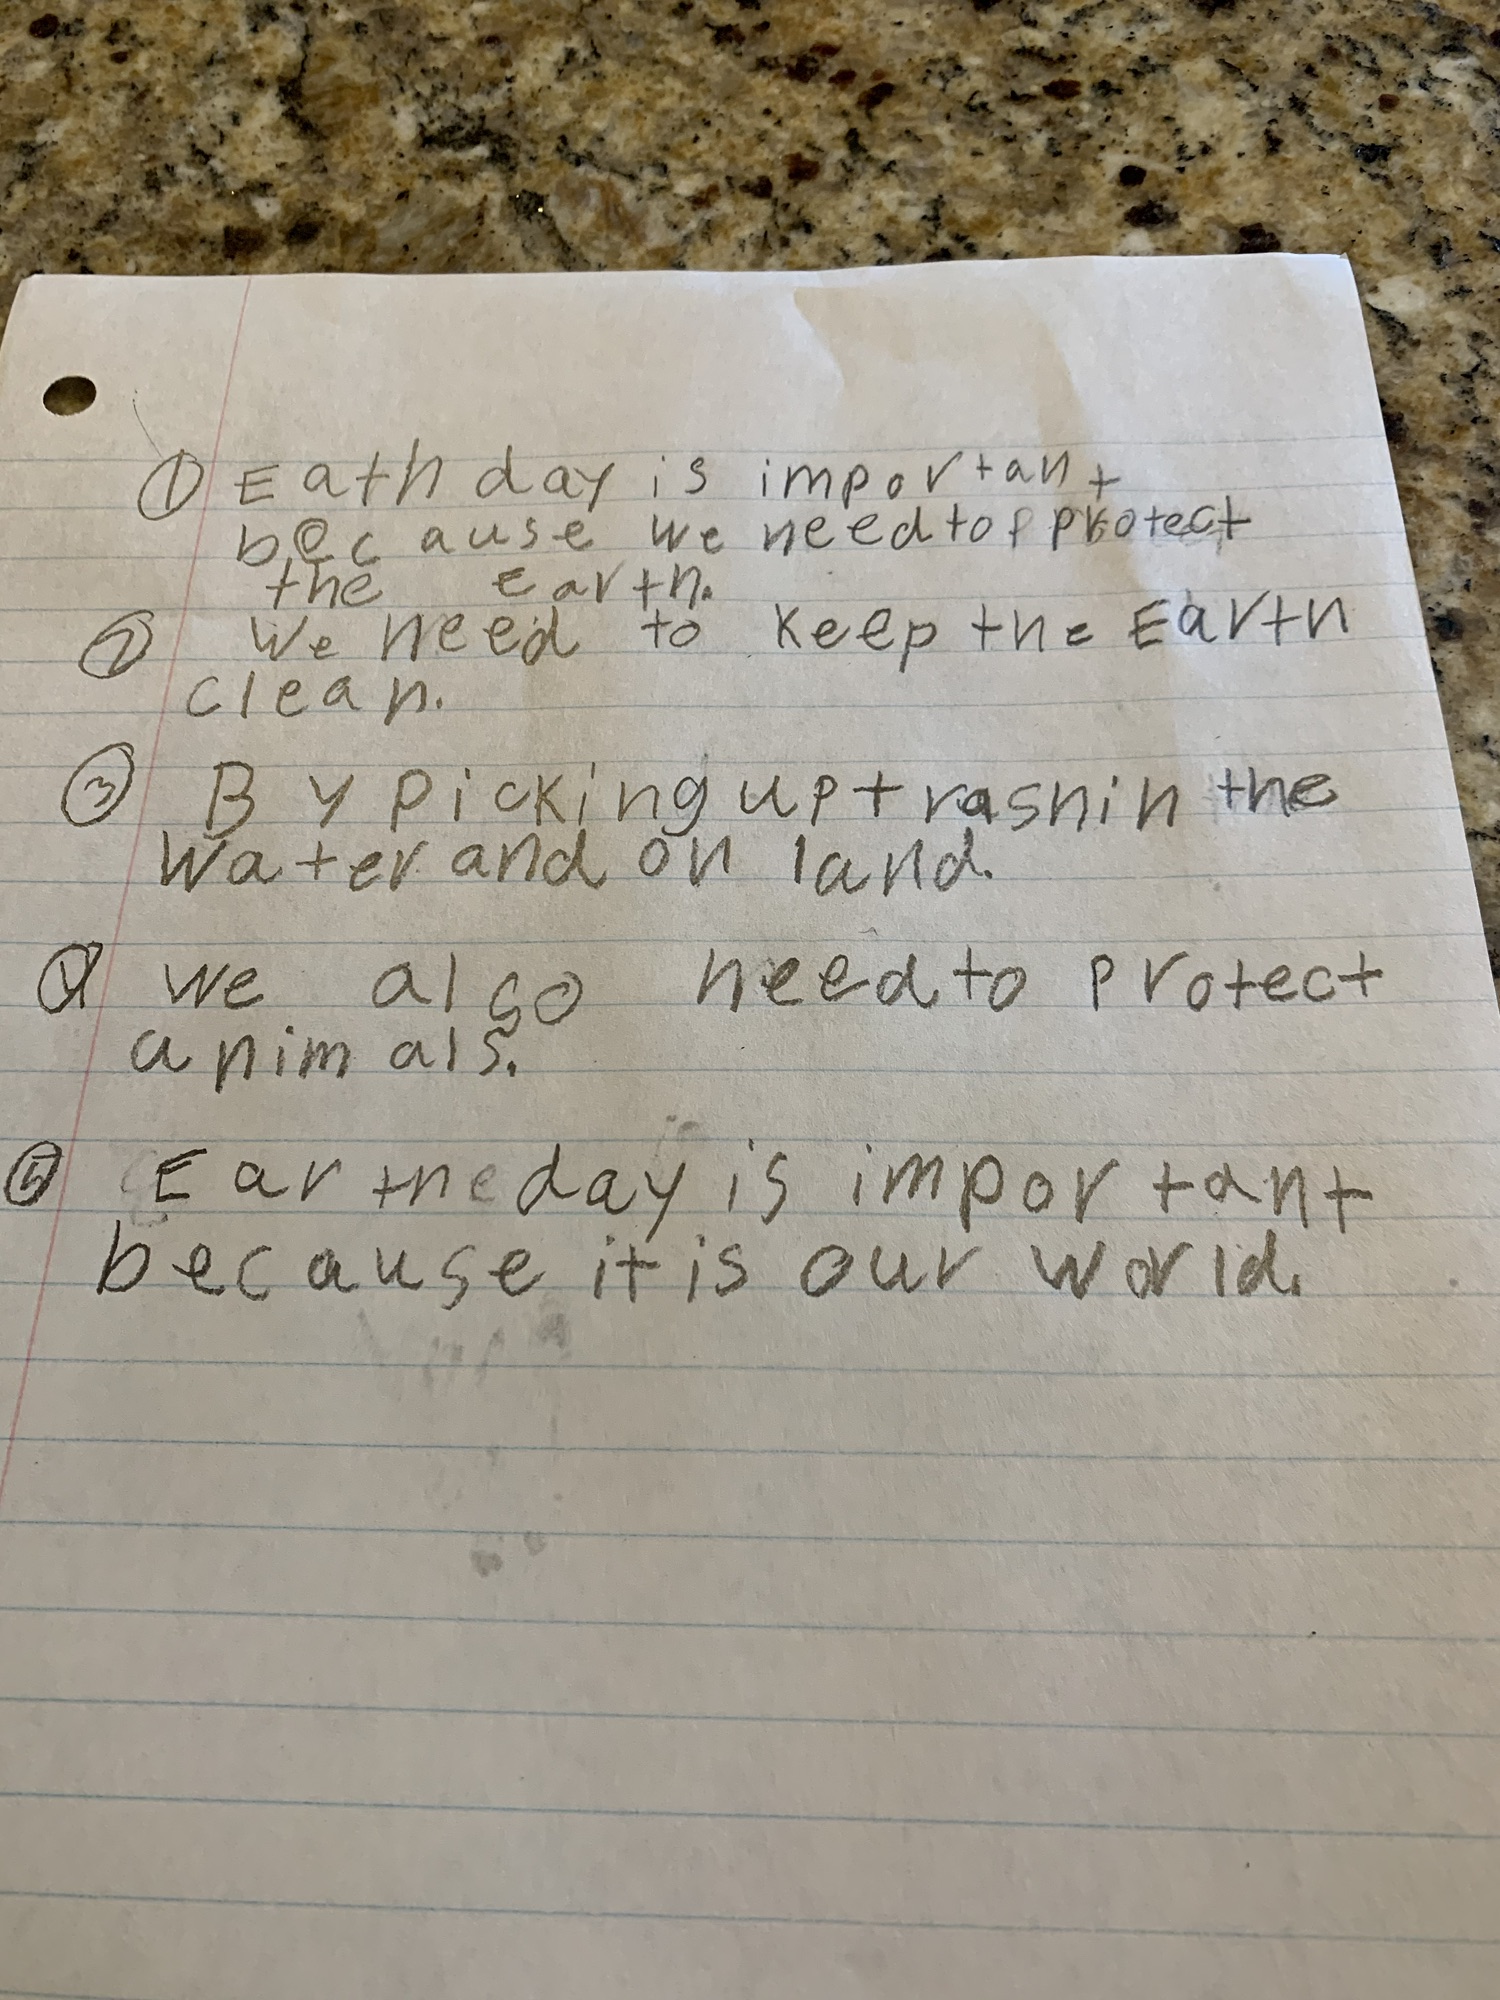 ① Eath day is important
because we need to p protect
the earth.
② We need to keep the Earth
clean.
③ By picking up trash in the
water and on land.
④ we also need to protect
animals.
⑤ Earthe day is important
because it is our world.